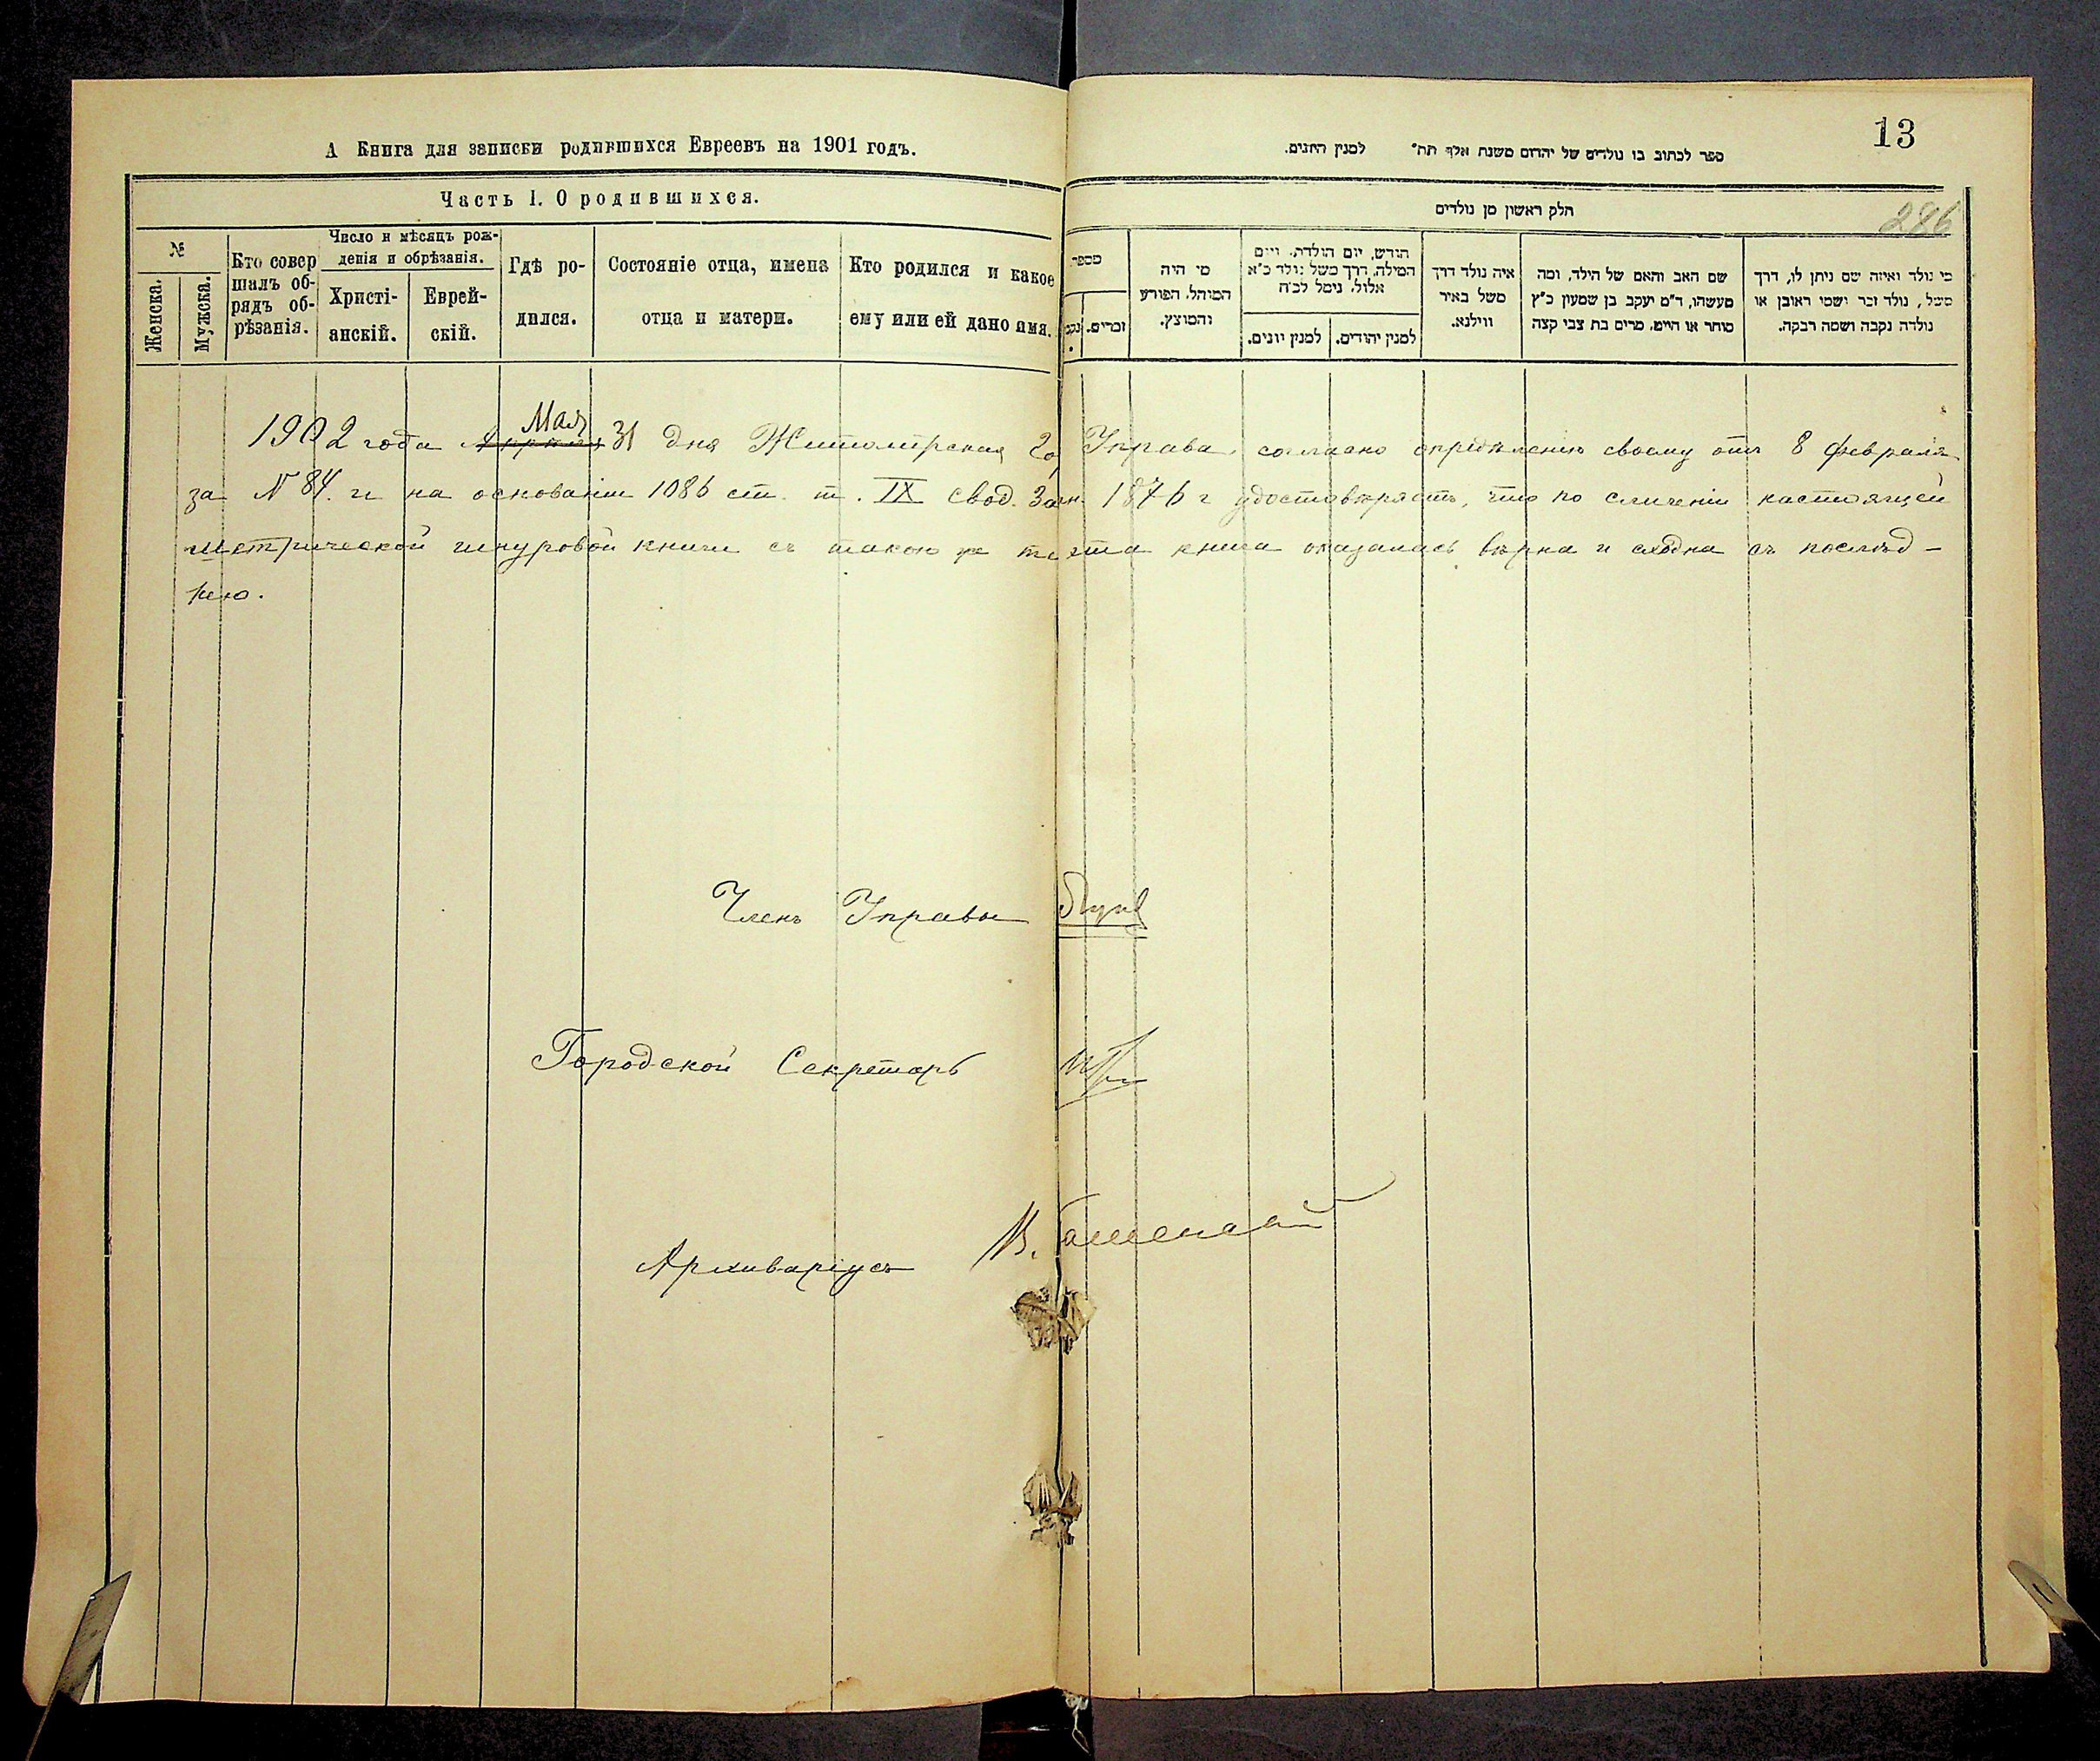 А Книга для записки родившихся Евреевъ на 1901 годъ.
Часть 1. О родившихся.
№
Женска.
Мужска.
Кто совер
шалъ об-
рядъ об-
рѣзанія.
Число и мѣсяцъ рож-
денія и обрѣзанія.
Христі-
анскій.
Еврей-
скій.
Гдѣ ро-
дился.
Состояніе отца, имена
отца и матери.
Кто родился и какое
ему или ей дано имя.
13
ספר לכתוב בו נולדים של יהדום משנת אלף תת״ למנין היונים.
חלק ראשון מן נולדים
286
מספר
נקב׳
זכרים.
מי היה
המוהל. הפורע
והמוצץ.
חודש, יום הולדת. ויום
המילה, דרך משל נולד כ״א
אלול. נימל לכ״ח
למנין יונים.
למנין יהודים.
איה נולד דרך
משל באיר
ווילנא.
שם האב והאם של הילד, ומה
מעשהו, ד״מ יעקב בן שמעון כ״ץ
סוחר או חייט, מרים בת צבי קצה
מי נולד ואיזה שם ניתן לו, דרך
משל, נולד זכר ושמו ראובן או
נולדה נקבה ושמה רבקה.
Мая
1902 года Апрѣля 31 дня Житомірская Го. Управа, согласно опредѣленію своему отъ 8 февраля
за № 84. и на основаніи 1086 ст. т. IX Свод. Зак. 1876 г удостовѣряетъ, что по сличеніи настоящей
метрической шнуровой книги съ такою же эта книга оказалась вѣрна и сходна съ послѣд-
нею.
Членъ Управы
Городской Секретарь
Архиваріусъ В.